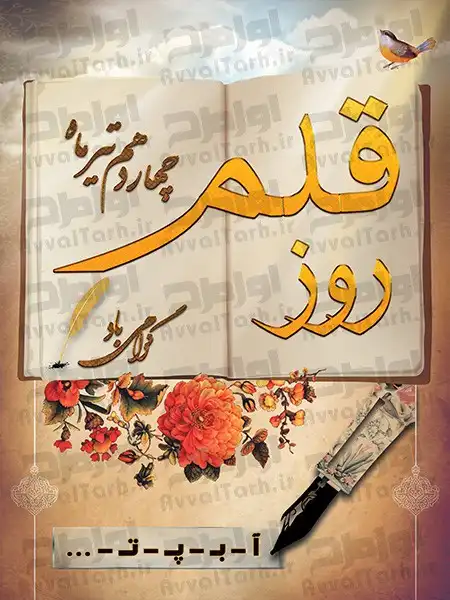 چهاردهم تیر ماه
روز قلم
گرامی باد
آ - ب - پ - ت - ...
اول طرح
AvvalTarh.ir